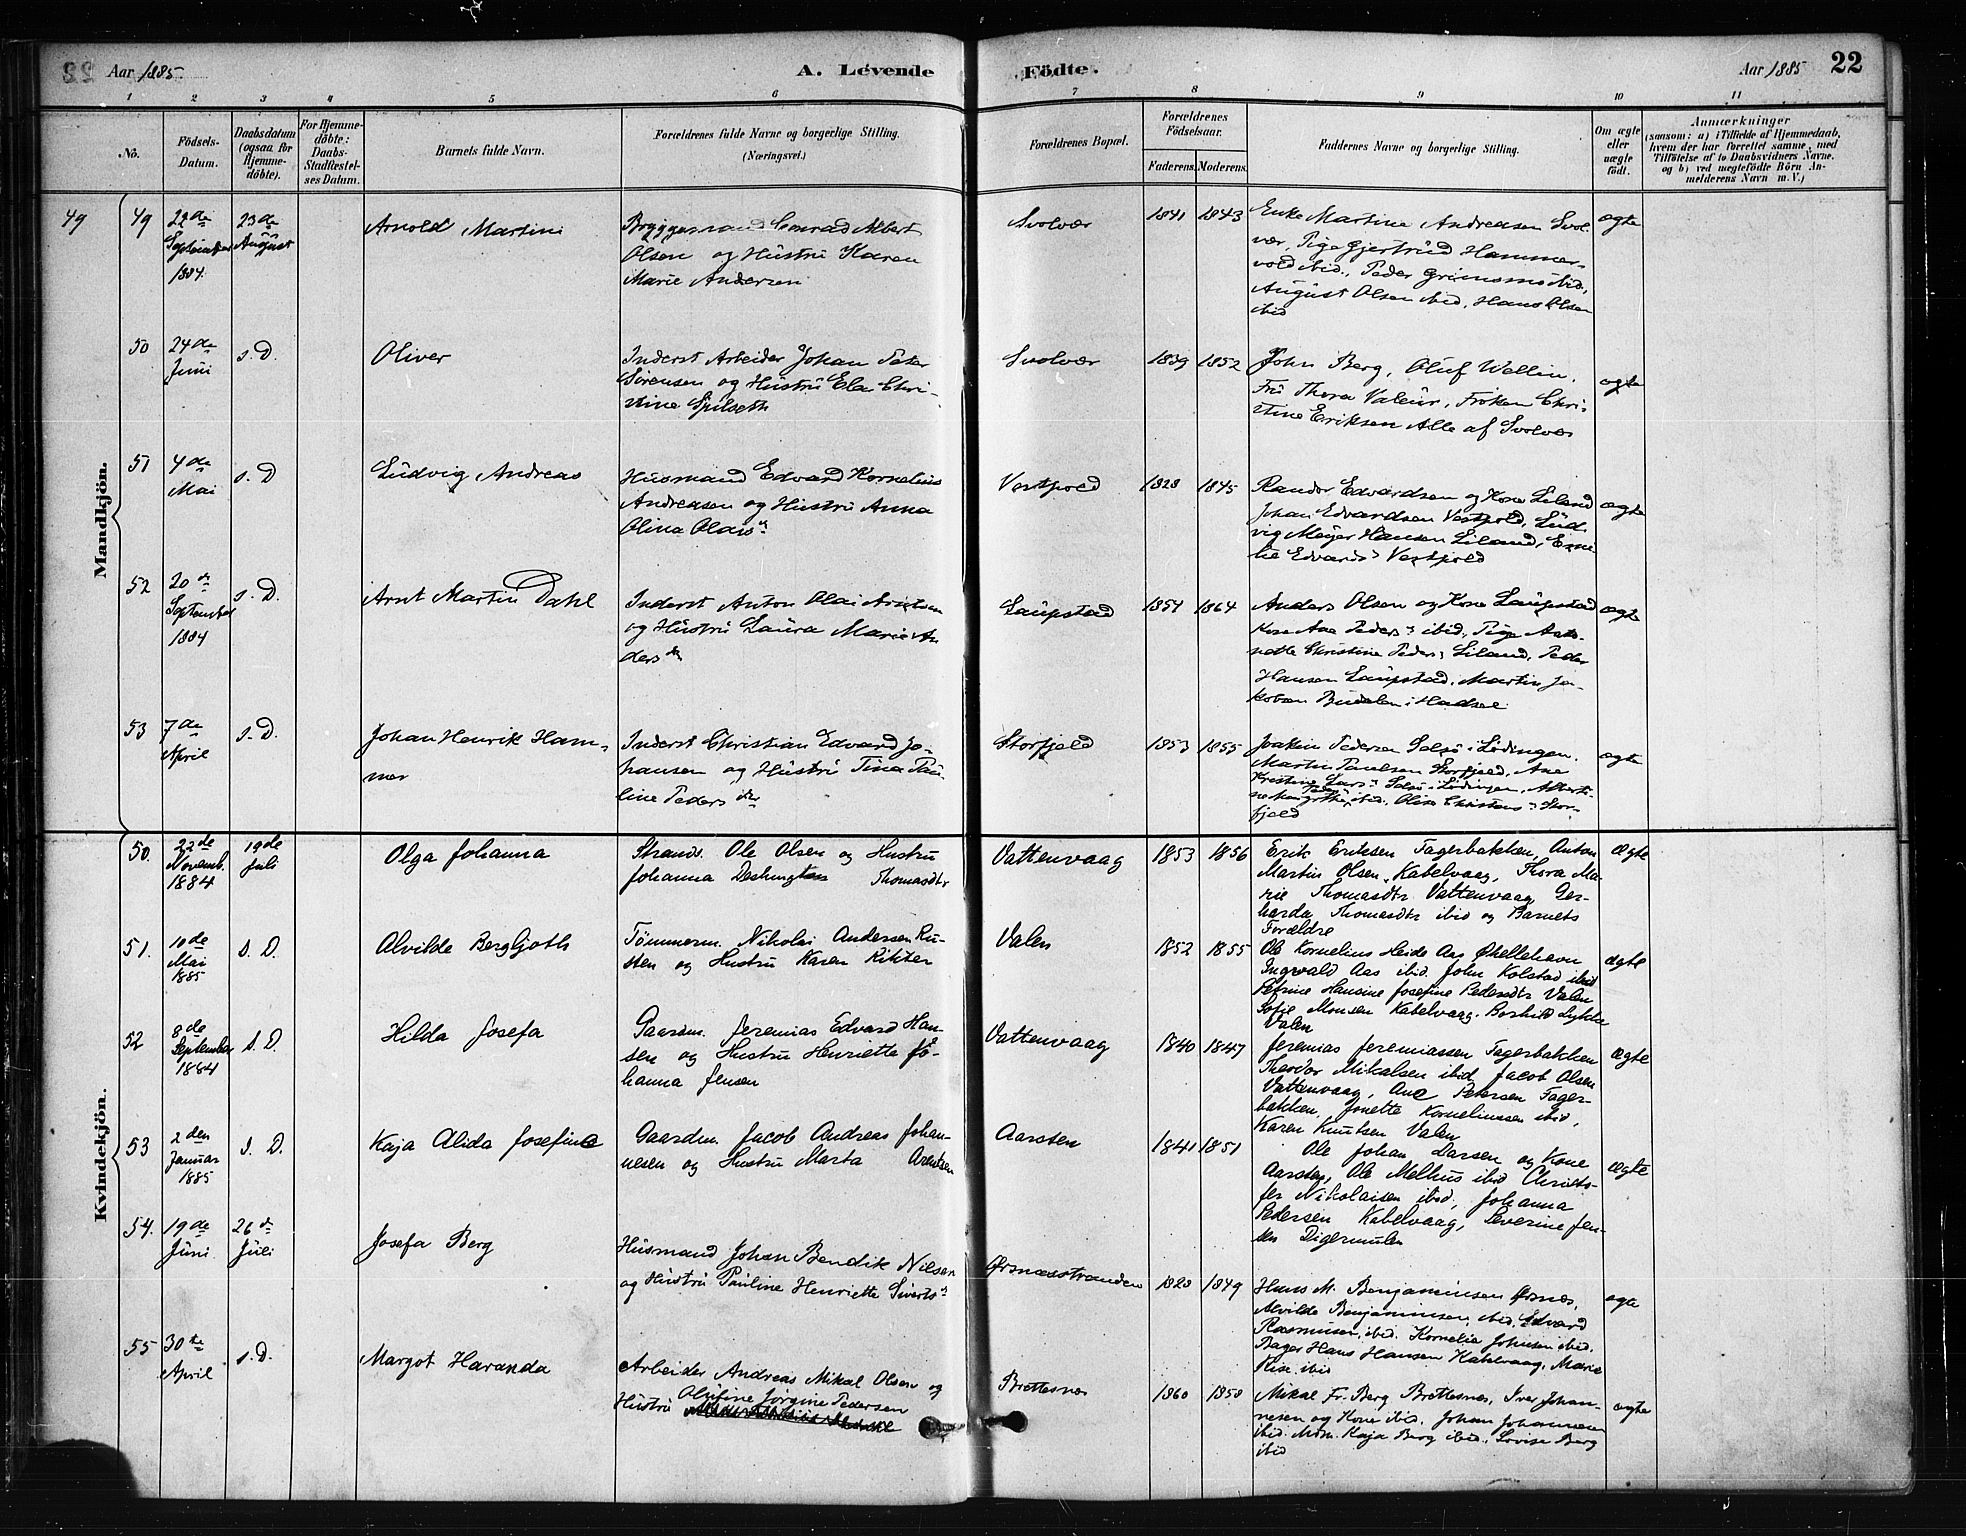 Aar 1885.
A. Levende
Födte.
Aar 1885
22
1 2 3 4 5 6 7 8 9 10 11
No.
Födsels-
Datum.
Daabsdatum
(ogsaa for
Hjemme-
döbte).
For Hjemme-
döbte:
Daabs-
Stadfæstel-
ses Datum.
Barnets fulde Navn.
Forældrenes fulde Navne og borgerlige Stilling.
(Næringsvei.)
Forældrenes Bopæl.
Forældrenes
Födselsaar.
Faderens. Moderens.
Faddernes Navne og borgerlige Stilling.
Om ægte
eller
uægte
födt.
Anmærkninger
(saasom: a) i Tilfælde af Hjemmedaab,
hvem der har forrettet samme, med
Tilföielse af to Daabsvidners Navne.
og b) ved uægtefödte Börn An-
melderens Navn m. V.)
Mandkjön.
49
49
22de
September
1884.
23de
August
Arnold Martin
Bryggemand Conrad Albert
Olsen og Hustru Karen
Marie Andersen
Svolvær
1841
1843
Enke Martine Andreasen Svol-
vær, Pige Gjertrud Hammer-
vold ibid., Peder Grimsmo ibid,
August Olsen ibid, Hans Olsen
ibid
ægte
50
24de
Juni
s. D.
Oliver
Inderst Arbeider Johan Peter
Sørensen og Hustru Ela Chri-
stine Spilseth
Svolvær
1839
1852
John Berg, Oluf Wellin,
Fru Thora Valeur, Frøken Chri-
stine Eriksen Alle af Svolvær
ægte
51
4de
Mai
s. D
Ludvig Andreas
Husmand Edvard Kornelius
Andreasen og Hustru Anna
Olina Olais
Vestpold
1828
1845
Randor Edvardsen og Kone Liland
Johan Edvardsen Vestpold, Lud
vig Meyer Hansen Liland, Emi
lie Edvards Vestpold
ægte
52
20de
September
1884
s. D.
Arnt Martin Dahl
Inderst Anton Olai Arntsen
og Hustru Laura Marie An
ders
Laupstad
1854
1864
Anders Olsen og Kone Laupstad
Kone Ane Peders ibid., Pige
Christine Peders Liland, Peder
Hansen Laupstad, Martin Ja-
kobsen i Hadsel
ægte
53
7de
April
s. D.
Johan Henrik Ham-
mer
Inderst Christian Edvard Jo-
hansen og Hustru Tina Pau-
line Peders
Storfjeld
1853
1855
Joakim Pedersen i Lødingen.
Martin Paulsen Storfjeld, Ane
Kristine Lars i Lødingen, Alberti-
ne ibid. Oline Christens Stor-
fjeld
ægte
Kvindekjön.
50.
22de
Novemb.
1884
19de
Juli
Olga Johanna
Strands. Ole Olsen og Hustru
Johanna Deshington Thomasdtr
Vattenvaag
1853
1856
Erik Eriksen Fagerbakken, Anton
Martin Olsen, Kabelvaag, Thora Ma-
rie Thomasdtr Vattenvaag Ger-
harda Thomasdtr ibid og Barnets
Forældre
Ægte
51.
10de
Mai
1885
s. D.
Alvilde Bergljoth
Tømmerm. Nikolai Andersen Ru-
sten og Hustru Karen Rikter
Valen
1852
1855
Ole Kornelius Heide Aas Økellehavn
Ingvald Aas ibid. John Kolstad ibid
Petrine Hansine Josefine Pedersdtr Valen
Sofie Monsen Kabelvaag. Borhild Lykke
Valen
Ægte
52
8de
September
1884
s. D.
Hilda Josefa
Gaardm. Jeremias Edvard Han-
sen og Hustru Henriette Jo-
hanna Jensen
Vattenvaag
1840
1847
Jeremias Jeremiassen Fagerbakken
Theodor Mikalsen ibid, Jacob Olsen
Vattenvaag, Ane Petersen Fager-
bakken, Jonette Korneliussen ibid,
Karen Knutsen Valen
Ægte
53
2den
Januar
1885
s. D.
Kaja Alida Josefine
Gaardm. Jacob Andreas Johan-
nesen og Hustru Marta Arentsen
Aarsten
1841
1851
Ole Johan Larsen og Kone
Aarsten, Ole Melhus ibid Christo-
fer Nikolaisen ibid, Johanna
Pedersen Kabelvaag, Severine Jen-
sen Digermulen
Ægte
54.
19de
Juni
26de
Juli
Josefa Berg
Husmand Johan Bendik Nilsen
og Hustru Pauline Henriette Siverts
Ørsnæsstranden
1828
1849
Hans M. Benjaminsen Ørsnæs,
Alvilde Benjaminsen ibid, Edvard
Rasmusen, ibid. Kornelia Johnsen ibid.
Bager Hans Hansen Kabelvaag, Marie
Rise ibid
ægte
55
30te
April
s. D.
Margot Haranda
Arbeider Andreas Mikal Olsen og
Hustru Olufine Jørgine Pedersen
Brettesnæs
1860
1858
Mikal Fr. Berg Brettesnæs, Iver Johan-
nesen og Kone ibid, Johan Johannesen
ibid. Mdm. Kaja Berg ibid., Lovise Berg
ibid
ægte